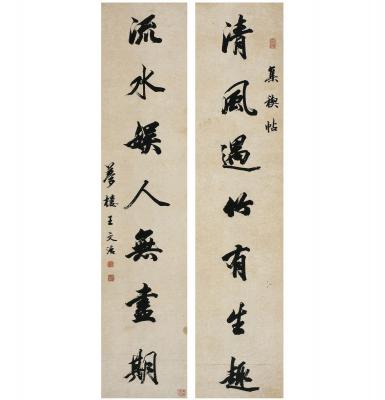 清風遇竹有生趣
集禊帖
流水娛人無盡期
夢樓王文治